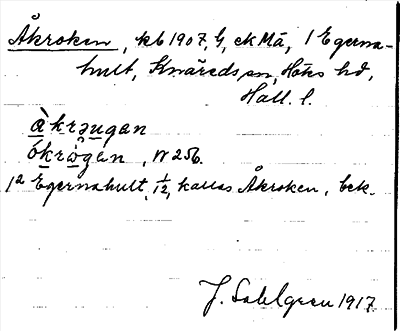 Åkroken, kb 1907, G, ekMå, 1 Egerna-
hult, Knäreds sn, Höks hd,
Hall. l.
àkrəugan
ókrògan, N 256.
1² Egernahult, 1/12, kallas Åkroken, bek.
J. Sahlgren 1917